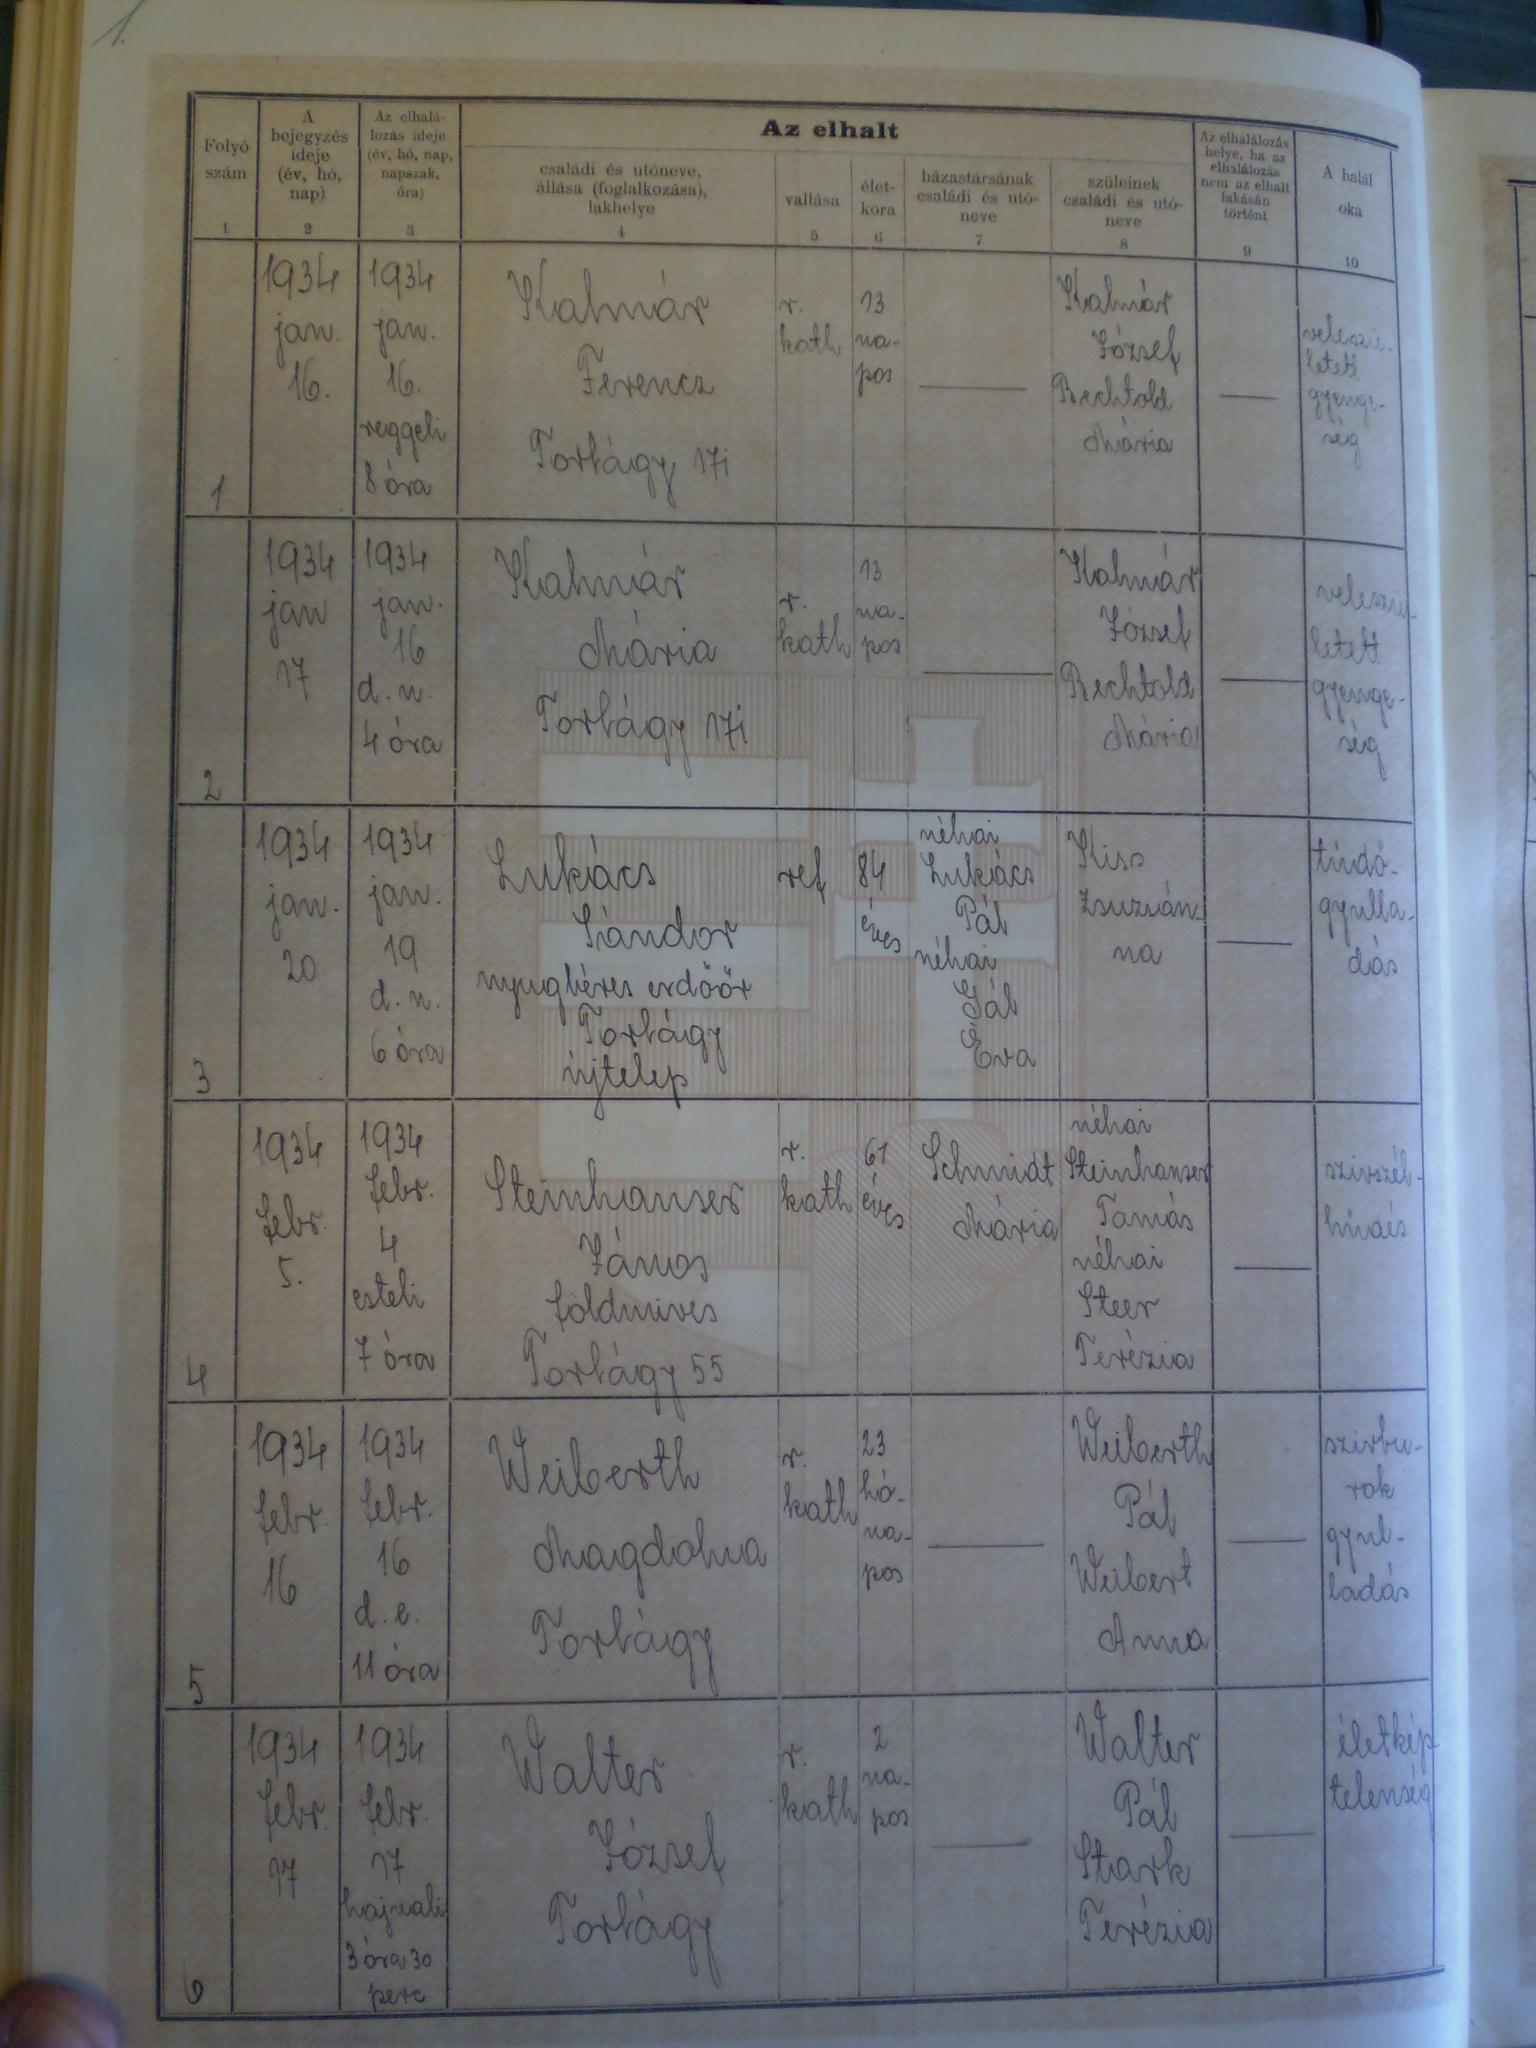 1.
Az elhalt
Folyó
szám
1
A
bejegyzés
ideje
(év, hó,
nap)
2
Az elhalá-
lozás ideje
(év, hó, nap,
napszak,
óra)
3
családi és utóneve,
állása (foglalkozása),
lakhelye
4
vallása
5
élet-
kora
6
házastársának
családi és utó-
neve
7
szüleinek
családi és utó-
neve
8
Az elhalálozás
helye, ha az
elhalálozás
nem az elhalt
lakásán
történt
9
A halál
oka
10
1
1934
jan.
16.
1934
jan.
16.
reggeli
8 óra
Kalmár
Ferencz
Torbágy 171
r.
kath
13
na-
pos
Kalmár
József
Rechtold
Mária
veleszü-
letett
gyenge-
ség
2
1934
jan
17
1934
jan.
16
d. u.
4 óra
Kalmár
Mária
Torbágy 171
r.
kath
13
na-
pos
Kalmár
József
Rechtold
Mária
veleszü-
letett
gyenge-
ség
3
1934
jan.
20
1934
jan.
19
d. u.
6 óra
Lukács
Sándor
nyugbéres erdőőr
Torbágy
újtelep
ref
84
éves
néhai
Lukács
Pál
néhai
Gál
Éva
Kiss
Zsuzsán-
na
tüdő-
gyulla-
dás
4
1934
febr.
5.
1934
febr.
4
esteli
7 óra
Steinhauser
János
földmives
Torbágy 55
r.
kath
61
éves
Schmidt
Mária
néhai
Steinhauser
Tamás
néhai
Steer
Terézia
szivszél-
hüdés
5
1934
febr.
16
1934
febr.
16
d. e.
11 óra
Weiberth
Magdolna
Torbágy
r.
kath
23
hó-
na-
pos
Weiberth
Pál
Weibert
Anna
szivbu-
rok
gyul-
ladás
6
1934
febr.
17
1934
febr.
17
hajnali
3 óra 30
perc
Walter
József
Torbágy
r.
kath
2
na-
pos
Walter
Pál
Stark
Terézia
életkép-
telenség